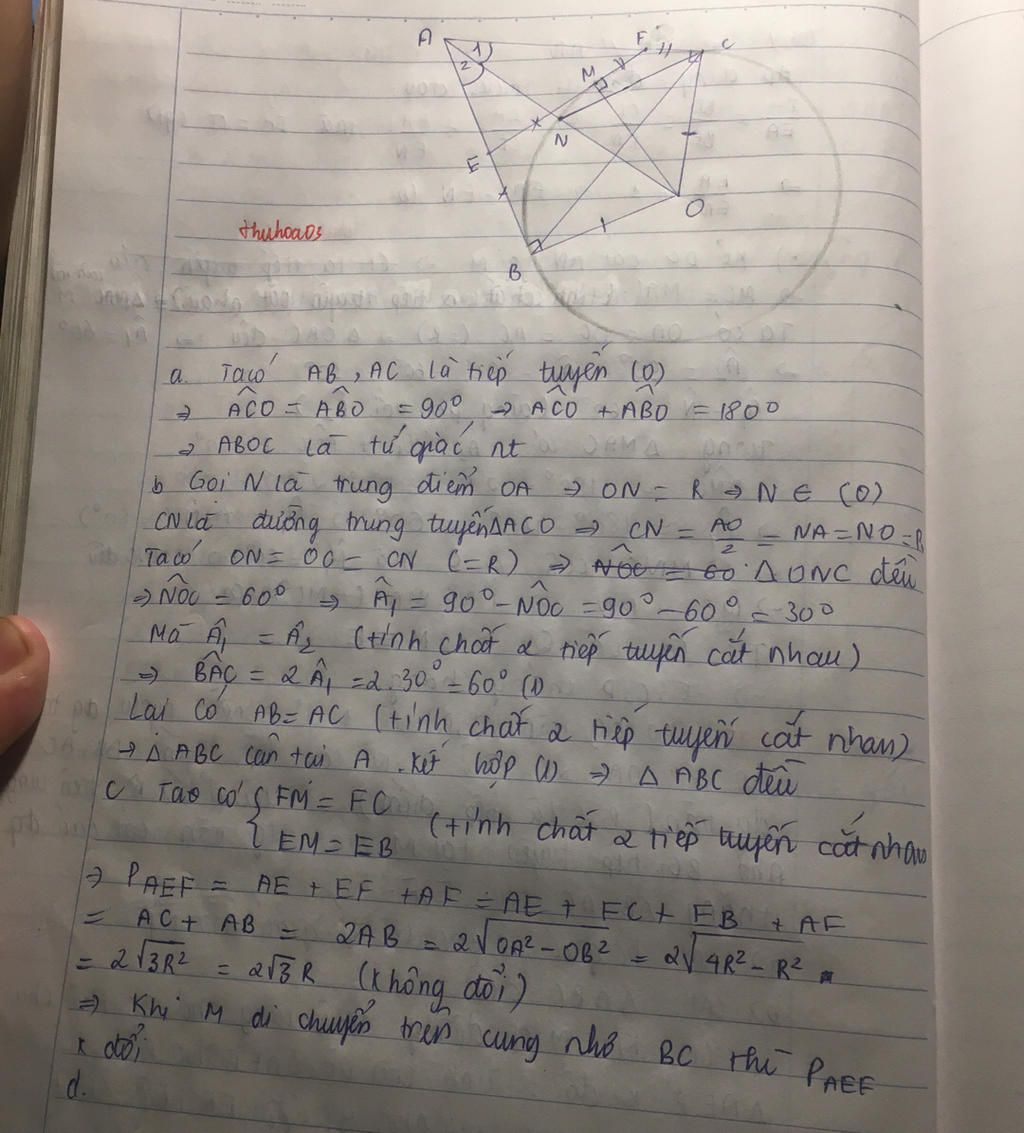 A
1
2
F
C
M
N
E
O
B
thuhoa03
a. Ta có AB, AC là tiếp tuyến (O)
⇒ ACO^ = ABO^ = 90° ⇒ ACO^ + ABO^ = 180°
⇒ ABOC là tứ giác nt
b Gọi N là trung điểm OA ⇒ ON = R ⇒ N ∈ (O)
CN là đường trung tuyến ΔACO ⇒ CN = AO/2 = NA = NO = R
Ta có ON = OC = CN (=R) ⇒ Δ ONC đều
⇒ NOC^ = 60° ⇒ A₁^ = 90° - NOC^ = 90° - 60° = 30°
Mà A₁^ = A₂^ (tính chất 2 tiếp tuyến cắt nhau)
⇒ BAC^ = 2A₁^ = 2.30° = 60° (1)
Lại có AB = AC (tính chất 2 tiếp tuyến cắt nhau)
⇒ Δ ABC cân tại A. kết hợp (1) ⇒ Δ ABC đều
C Tao có { FM = FC
{ EM = EB (tính chất 2 tiếp tuyến cắt nhau
⇒ P_AEF = AE + EF + AF = AE + FC + EB + AF
= AC + AB = 2AB = 2√(OA² - OB²) = 2√(4R² - R²)
= 2√(3R²) = 2√3R (không đổi)
⇒ Khi M di chuyển trên cung nhỏ BC thì P_AEF
k đổi
d.